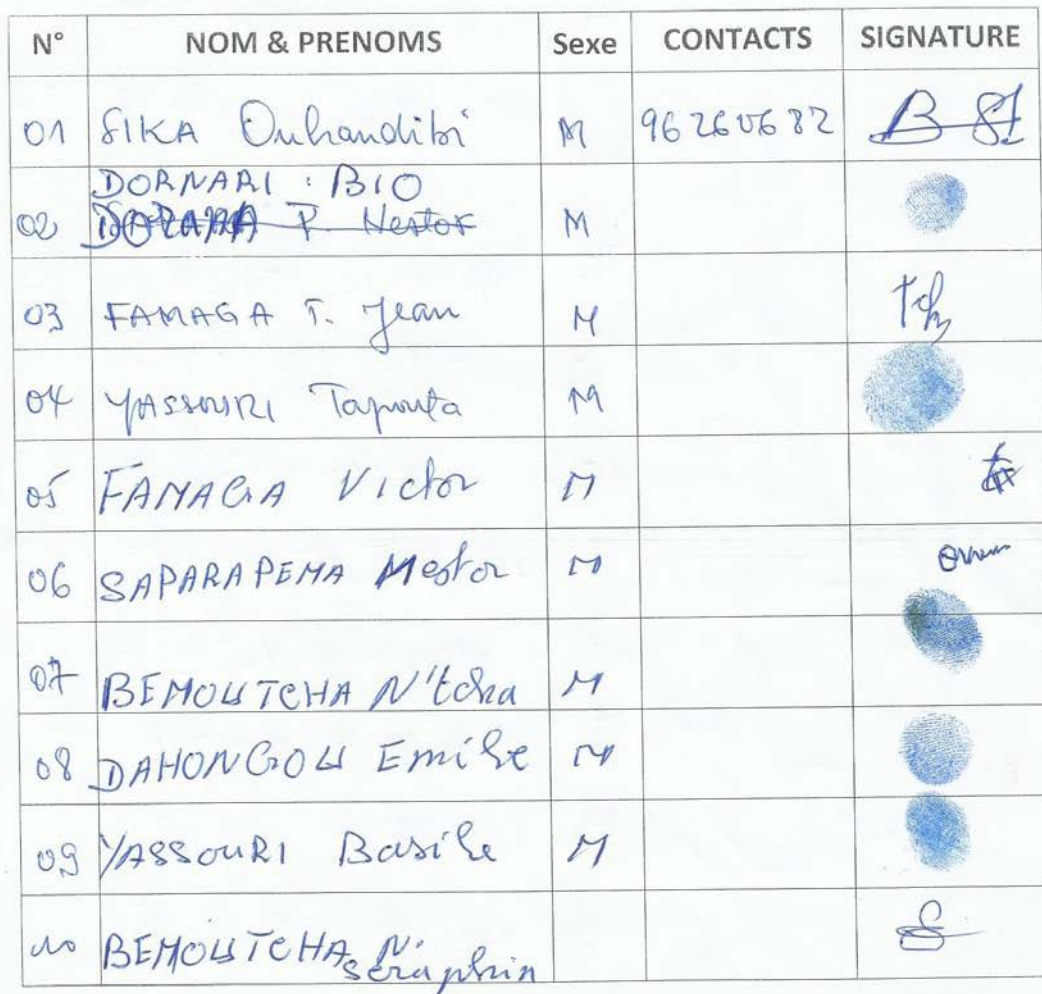 N° NOM & PRENOMS Sexe CONTACTS SIGNATURE
01 SIKA Ouhandibi M 96260682
DORNARI : BIO
02 P. Nestor M
03 FAMAGA T. Jean M
04 YASSOURI Tapouta M
05 FAMAGA Victor M
06 SAPARAPEMA Nestor M
07 BEMOUTCHA N'tcha M
08 DAHONGOU Emile M
09 YASSOURI Basile M
10 BEMOUTCHA N.
Séraphin